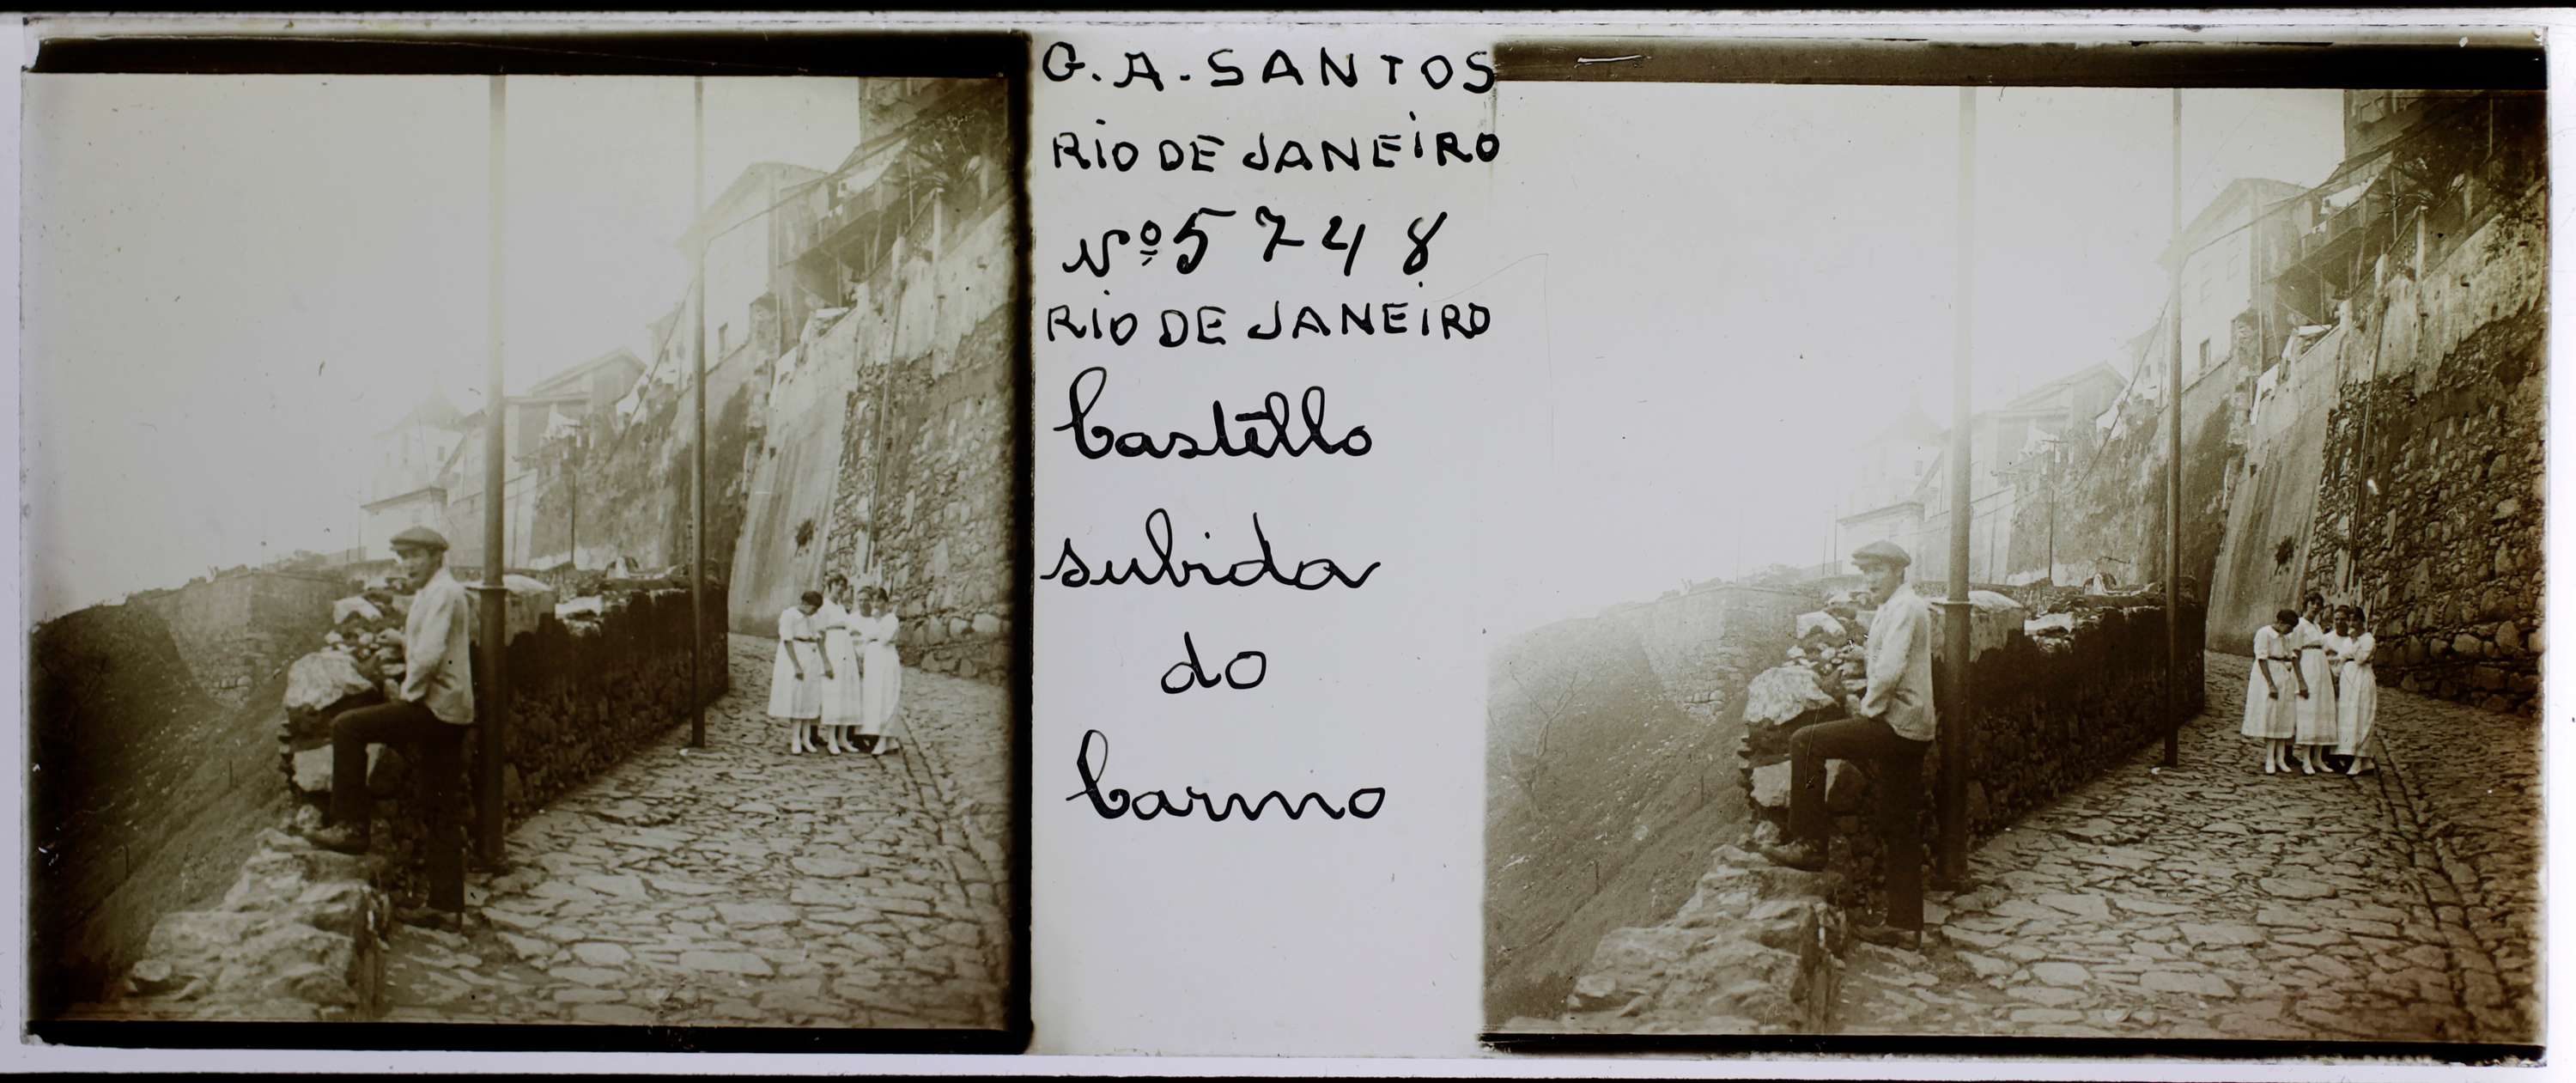 G. A. SANTOS
RIO DE JANEIRO
Nº 5748
RIO DE JANEIRO
Castello
subida
do
Carmo